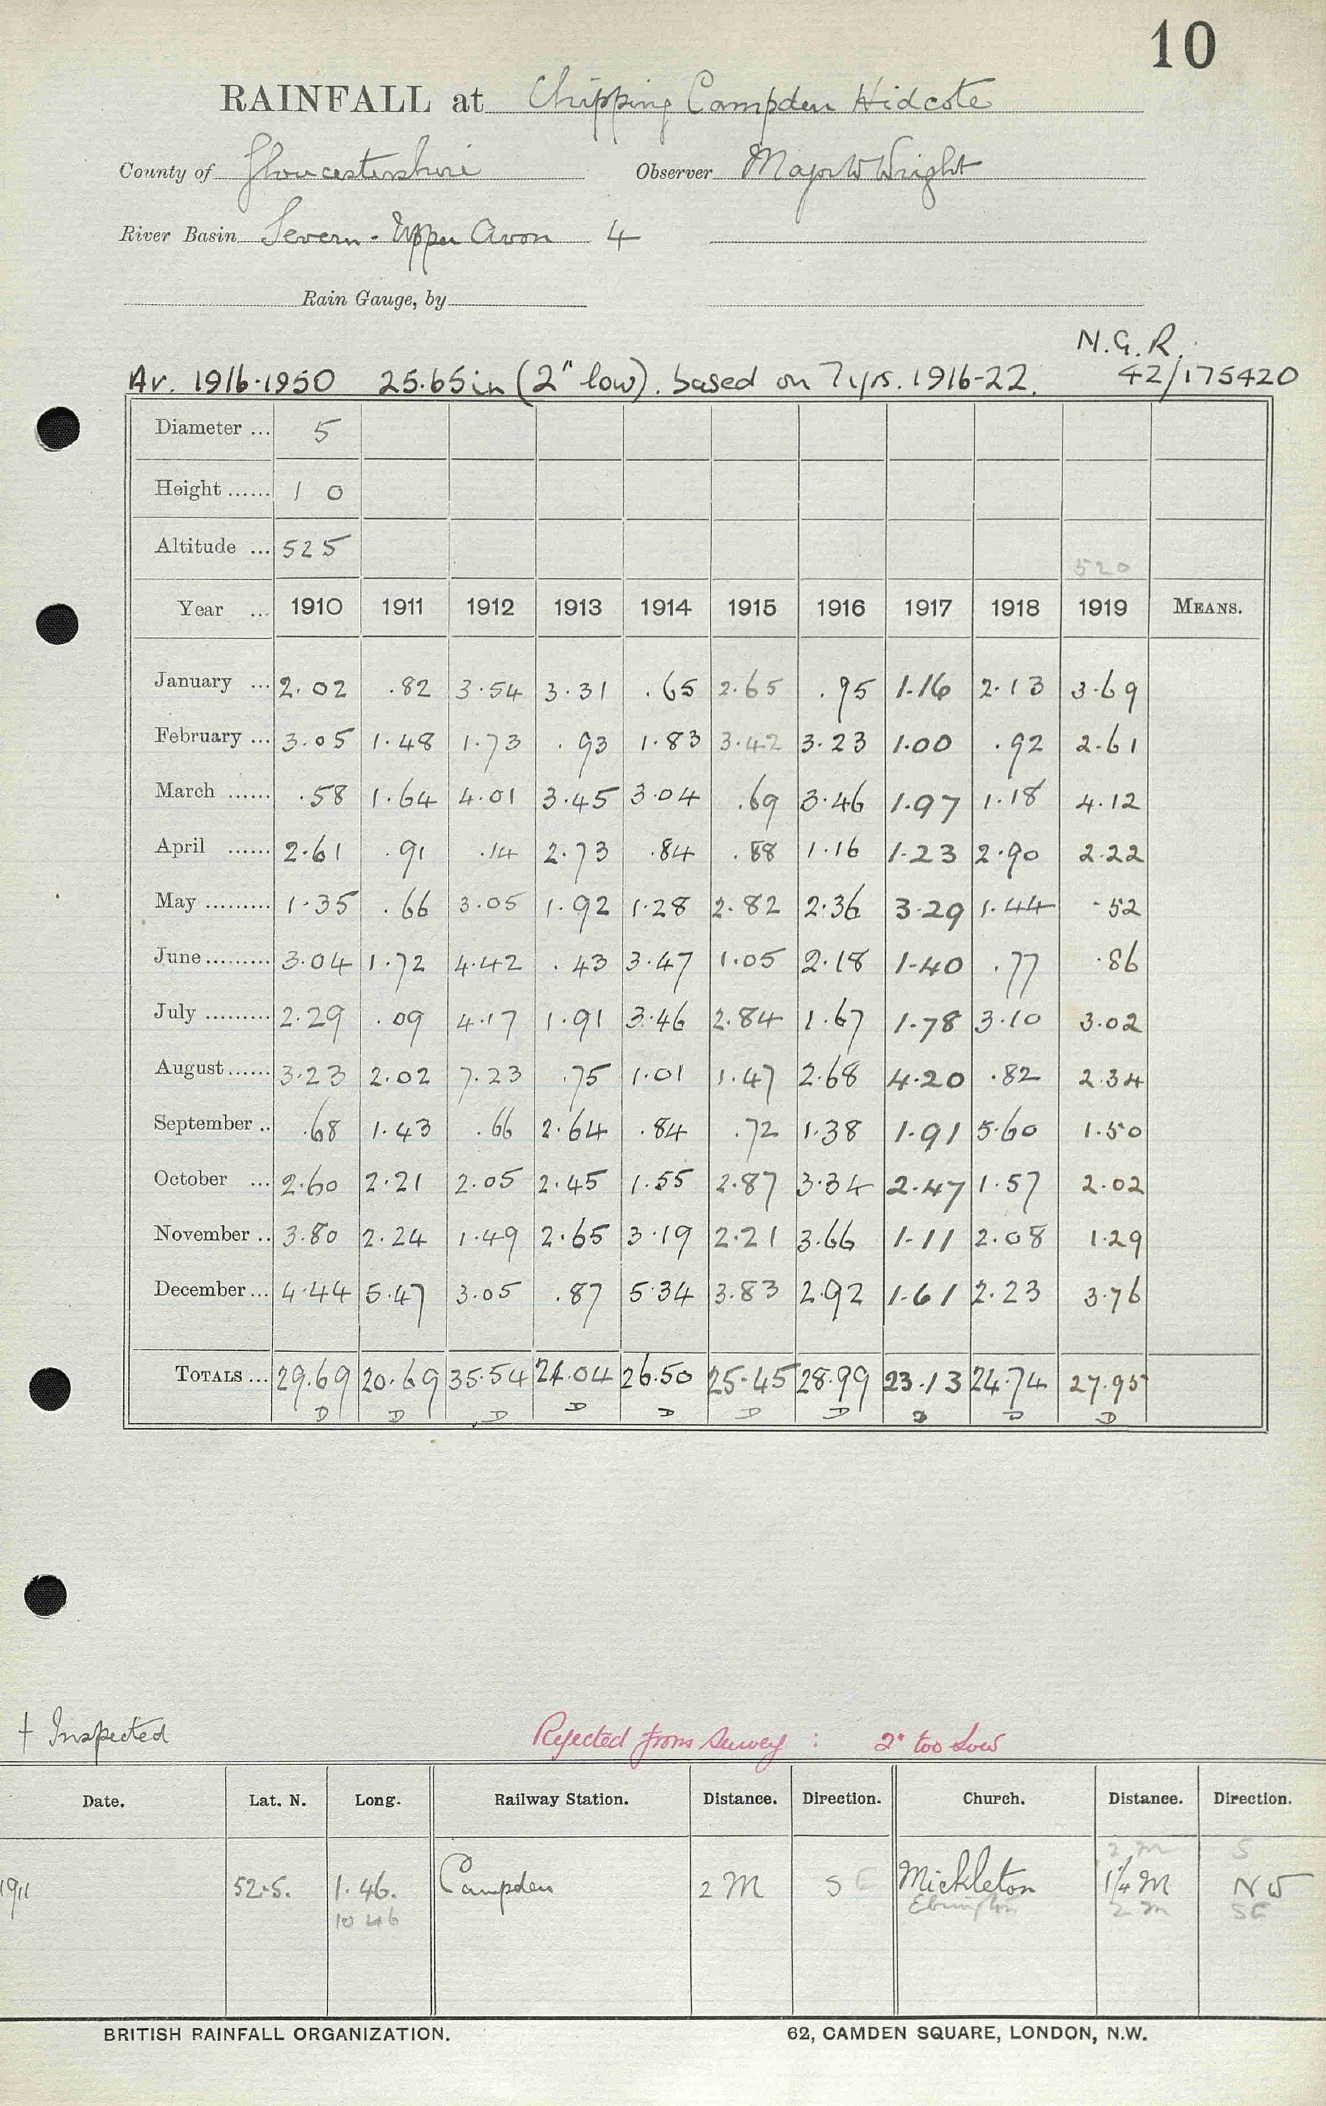 10
RAINFALL at Chipping Campden Hidcote
County of Gloucestershire Observer Major W Wright
River Basin Severn - Upper Avon 4
Rain Gauge, by
N.G.R.
Av. 1916-1950 25.65in (2" low). based on 7 yrs. 1916-22. 42/175420
Diameter ... 5
Height ...... 1 0
Altitude ... 525 520
Year ... 1910 1911 1912 1913 1914 1915 1916 1917 1918 1919 MEANS.
January ... 2.02 .82 3.54 3.31 .65 2.65 .95 1.16 2.13 3.69
February ... 3.05 1.48 1.73 .93 1.83 3.42 3.23 1.00 .92 2.61
March ...... .58 1.64 4.01 3.45 3.04 .69 3.46 1.97 1.18 4.12
April ...... 2.61 .91 .14 2.73 .84 .88 1.16 1.23 2.90 2.22
May ......... 1.35 .66 3.05 1.92 1.28 2.82 2.36 3.29 1.44 .52
June ......... 3.04 1.72 4.42 .43 3.47 1.05 2.18 1.40 .77 .86
July ......... 2.29 .09 4.17 1.91 3.46 2.84 1.67 1.78 3.10 3.02
August ...... 3.23 2.02 7.23 .75 1.01 1.47 2.68 4.20 .82 2.34
September .. .68 1.43 .66 2.64 .84 .72 1.38 1.91 5.60 1.50
October ... 2.60 2.21 2.05 2.45 1.55 2.87 3.34 2.47 1.57 2.02
November .. 3.80 2.24 1.49 2.65 3.19 2.21 3.66 1.11 2.08 1.29
December ... 4.44 5.47 3.05 .87 5.34 3.83 2.92 1.61 2.23 3.76
TOTALS ... 29.69 20.69 35.54 24.04 26.50 25.45 28.99 23.13 24.74 27.95
D D D D D D D D D D
† Inspected Rejected from survey : 2" too low
Date. Lat. N. Long. Railway Station. Distance. Direction. Church. Distance. Direction.
2 m S
1911 52.5. 1.46. Campden 2 M S E Mickleton 1¼ M NW
10 46 Ebrington 2 m SE
BRITISH RAINFALL ORGANIZATION. 62, CAMDEN SQUARE, LONDON, N.W.